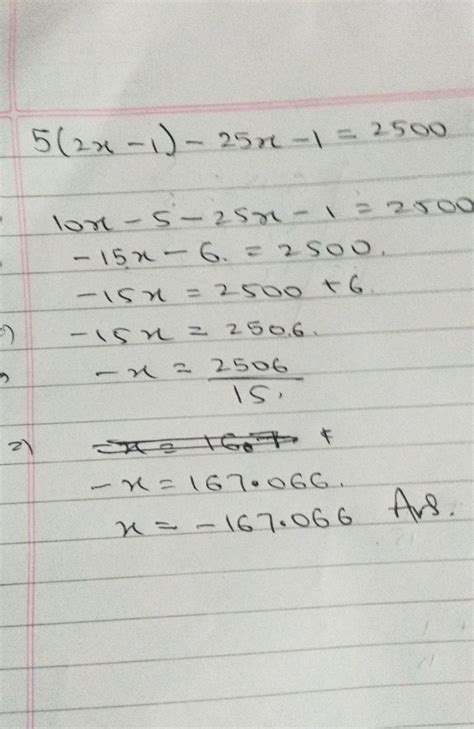 5(2x-1)-25x-1=2500
10x-5-25x-1=2500
-15x-6.=2500.
-15x=2500+6.
-15x=2506.
-x=2506/15.
2)
-x=167.066.
x=-167.066 Ans.